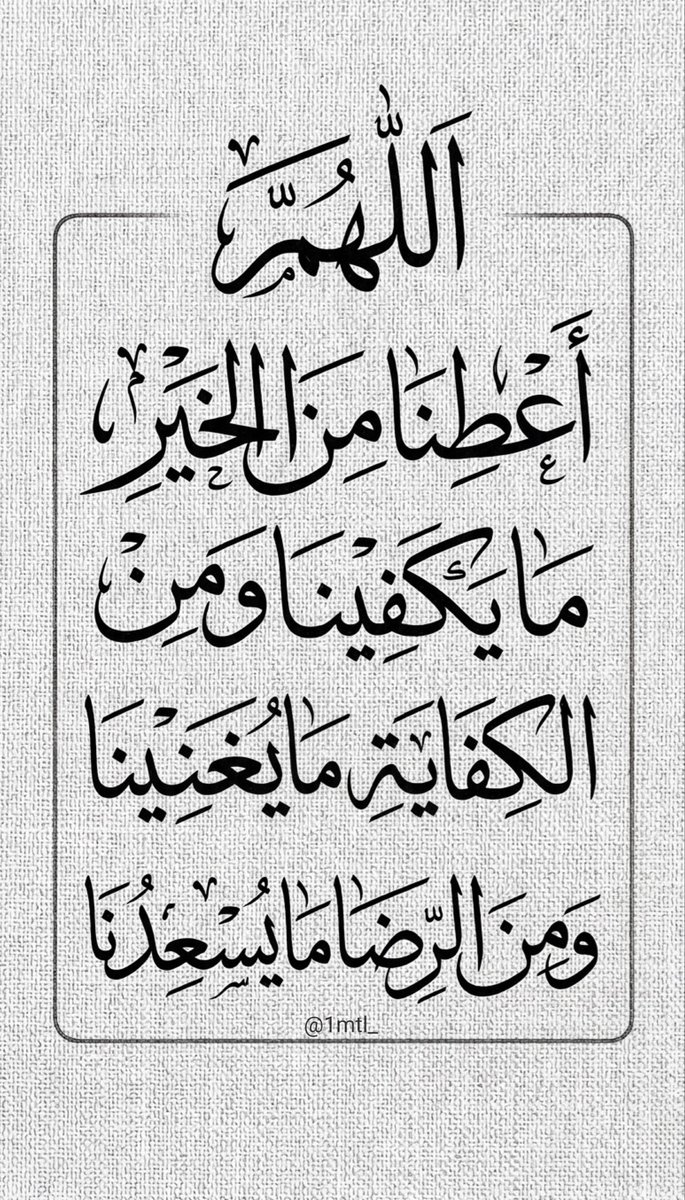 اَللّٰهُمَّ
أَعْطِنَا مِنَ الخَيْرِ
مَا يَكْفِيْنَا وَمِنْ
الكِفَايَةِ مَا يُغْنِيْنَا
وَمِنَ الرِّضَا مَا يُسْعِدُنَا
@1mtl_